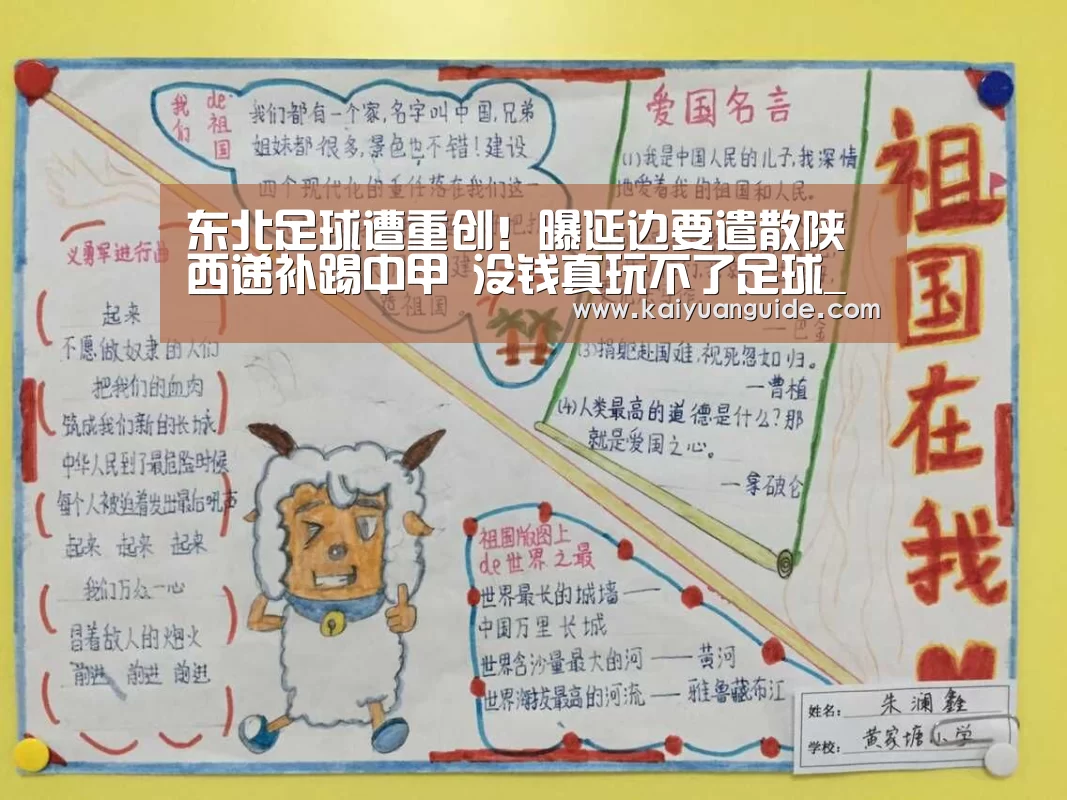 我们
de祖国
我们都有一个家,名字叫中国,兄弟
姐妹都很多,景色也不错!建设
四个现代化的重任落在我们这一
造祖国。
爱国名言
(1)我是中国人民的儿子,我深情
地爱着我的祖国和人民。
东北足球遭重创!曝延边要遣散陕
西递补踢中甲 没钱真玩不了足球_
www.kaiyuanguide.com
—巴金
(3)捐躯赴国难,视死忽如归。
—曹植
(4)人类最高的道德是什么?那
就是爱国之心。
—拿破仑
义勇军进行曲
起来
不愿做奴隶的人们
把我们的血肉
筑成我们新的长城
中华人民到了最危险时候
每个人被迫着发出最后吼声
起来 起来 起来
我们万众一心
冒着敌人的炮火
前进 前进 前进
祖国版图上
de世界之最
世界最长的城墙——
中国万里长城
世界含沙量最大的河——黄河
世界海拔最高的河流——雅鲁藏布江
祖国在我
姓名:朱澜鑫
学校:黄家塘小学